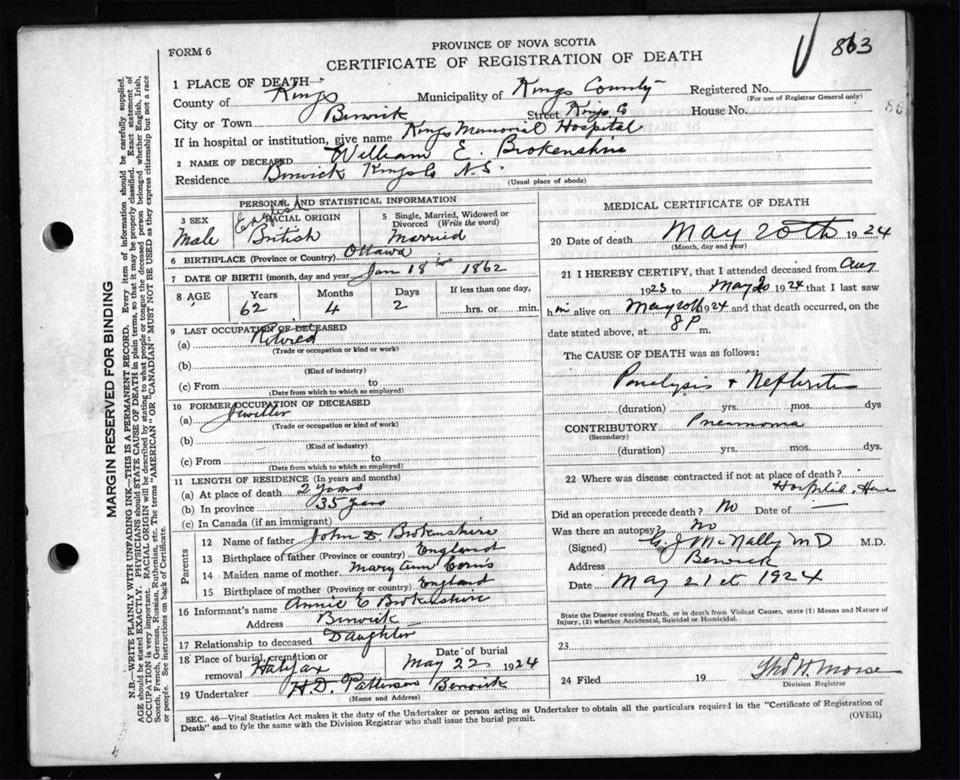 863
FORM 6
PROVINCE OF NOVA SCOTIA
CERTIFICATE OF REGISTRATION OF DEATH
1 PLACE OF DEATH—
County of Kings Municipality of Kings County Registered No.
(For use of Registrar General only)
City or Town Berwick Street Kings Co House No.
If in hospital or institution, give name Kings Memorial Hospital
2 NAME OF DECEASED William E. Brokenshire
Residence Berwick Kings Co N.S.
(Usual place of abode)
PERSONAL AND STATISTICAL INFORMATION
3 SEX Male
RACIAL ORIGIN English British
5 Single, Married, Widowed or Divorced (Write the word) Married
6 BIRTHPLACE (Province or Country) Ottawa
7 DATE OF BIRTH (month, day and year) Jan 18th 1862
8 AGE Years Months Days If less than one day,
62 4 2 hrs. or min.
9 LAST OCCUPATION OF DECEASED
(a) Retired
(Trade or occupation or kind or work)
(b)
(Kind of industry)
(c) From to
(Date from which to which so employed)
10 FORMER OCCUPATION OF DECEASED
(a) Jeweller
(Trade or occupation or kind of work)
(b)
(Kind of industry)
(c) From to
(Date from which to which so employed)
11 LENGTH OF RESIDENCE (In years and months)
(a) At place of death 2 years
(b) In province 35 years
(c) In Canada (if an immigrant)
Parents
12 Name of father John Brokenshire
13 Birthplace of father (Province or country) England
14 Maiden name of mother Mary Ann
15 Birthplace of mother (Province or country) England
16 Informant's name Annie E Brokenshire
Address Berwick
17 Relationship to deceased Daughter
18 Place of burial, cremation or removal Halifax Date of burial May 22 1924
19 Undertaker H.D. Patterson Berwick
(Name and Address)
MEDICAL CERTIFICATE OF DEATH
20 Date of death May 20th 1924
(Month, day and year)
21 I HEREBY CERTIFY, that I attended deceased from Aug
1923 to May 20 1924 that I last saw
him alive on May 20th 1924 and that death occurred, on the
date stated above, at 8 P m.
The CAUSE OF DEATH was as follows:
Paralysis + Nephritis
(duration) yrs. mos. dys
CONTRIBUTORY Pneumonia
(Secondary)
(duration) yrs. mos. dys.
22 Where was disease contracted if not at place of death?
Hospital,
Did an operation precede death? No Date of —
Was there an autopsy? No
(Signed) E J McNally MD M.D.
Address Berwick
Date May 21st 1924
State the Disease causing Death, or in death from Violent Causes, state (1) Means and Nature of
Injury, (2) whether Accidental, Suicidal or Homicidal.
23
24 Filed 19 Thos H Morse
Division Registrar
SEC. 46—Vital Statistics Act makes it the duty of the Undertaker or person acting as Undertaker to obtain all the particulars required in the "Certificate of Registration of
Death" and to fyle the same with the Division Registrar who shall issue the burial permit. (OVER)
MARGIN RESERVED FOR BINDING
N.B.—WRITE PLAINLY WITH UNFADING INK—THIS IS A PERMANENT RECORD. Every item of information should be carefully supplied.
AGE should be stated EXACTLY. PHYSICIANS should STATE CAUSE OF DEATH in plain terms, so that it may be properly classified. Exact statement of
OCCUPATION is very important. RACIAL ORIGIN will be described by stating to what people or tongue the deceased person belonged whether English, Irish,
Scotch, French, German, Russian, Ruthenian, etc. The terms "AMERICAN" or "CANADIAN" MUST NOT BE USED as they express citizenship but not a race
or people. See instructions on back of Certificate.